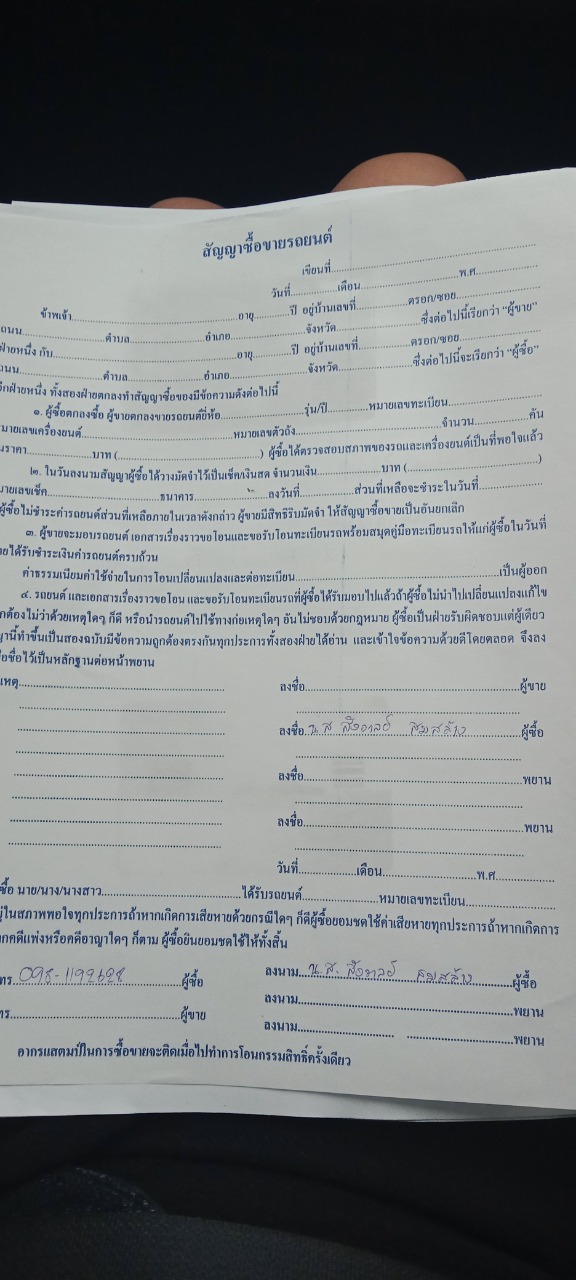 สัญญาซื้อขายรถยนต์
เขียนที่....................
วันที่..............เดือน..............................พ.ศ....................
ข้าพเจ้า........................................อายุ............ปี อยู่บ้านเลขที่...............ตรอก/ซอย......................
ถนน......................ตำบล......................อำเภอ......................จังหวัด......................ซึ่งต่อไปนี้เรียกว่า “ผู้ขาย”
ฝ่ายหนึ่ง กับ........................................อายุ............ปี อยู่บ้านเลขที่...............ตรอก/ซอย......................
ถนน......................ตำบล......................อำเภอ......................จังหวัด......................ซึ่งต่อไปนี้จะเรียกว่า “ผู้ซื้อ”
อีกฝ่ายหนึ่ง ทั้งสองฝ่ายตกลงทำสัญญาซื้อของมีข้อความดังต่อไปนี้
๑. ผู้ซื้อตกลงซื้อ ผู้ขายตกลงขายรถยนต์ยี่ห้อ......................รุ่น/ปี............หมายเลขทะเบียน......................
หมายเลขเครื่องยนต์........................................หมายเลขตัวถัง........................................จำนวน...............คัน
ในราคา...............บาท (........................................) ผู้ซื้อได้ตรวจสอบสภาพของรถและเครื่องยนต์เป็นที่พอใจแล้ว
๒. ในวันลงนามสัญญาผู้ซื้อได้วางมัดจำไว้เป็นเช็ค/เงินสด จำนวนเงิน...............บาท (..............................)
หมายเลขเช็ค..............................ธนาคาร......................ลงวันที่...............ส่วนที่เหลือจะชำระในวันที่...............
ผู้ซื้อไม่ชำระค่ารถยนต์ส่วนที่เหลือภายในเวลาดังกล่าว ผู้ขายมีสิทธิริบมัดจำ ให้สัญญาซื้อขายเป็นอันยกเลิก
๓. ผู้ขายจะมอบรถยนต์ เอกสารเรื่องราวขอโอนและขอรับโอนทะเบียนรถพร้อมสมุดคู่มือทะเบียนรถให้แก่ผู้ซื้อในวันที่
ายได้รับชำระเงินค่ารถยนต์ครบถ้วน
ค่าธรรมเนียมค่าใช้จ่ายในการโอนเปลี่ยนแปลงและต่อทะเบียน........................................เป็นผู้ออก
๔. รถยนต์ และเอกสารเรื่องราวขอโอน และขอรับโอนทะเบียนรถที่ผู้ซื้อได้รับมอบไปแล้วถ้าผู้ซื้อไม่นำไปเปลี่ยนแปลงแก้ไข
กต้องไม่ว่าด้วยเหตุใดๆ ก็ดี หรือนำรถยนต์ไปใช้ทางก่อเหตุใดๆ อันไม่ชอบด้วยกฎหมาย ผู้ซื้อเป็นฝ่ายรับผิดชอบแต่ผู้เดียว
ญานี้ทำขึ้นเป็นสองฉบับมีข้อความถูกต้องตรงกันทุกประการทั้งสองฝ่ายได้อ่าน และเข้าใจข้อความด้วยดีโดยตลอด จึงลง
อชื่อไว้เป็นหลักฐานต่อหน้าพยาน
เหตุ........................................ ลงชื่อ........................................ผู้ขาย
ลงชื่อ น.ส ........................................ผู้ซื้อ
ลงชื่อ........................................พยาน
ลงชื่อ........................................พยาน
วันที่...............เดือน......................พ.ศ...............
ซื้อ นาย/นาง/นางสาว..............................ได้รับรถยนต์......................หมายเลขทะเบียน......................
ยู่ในสภาพพอใจทุกประการถ้าหากเกิดการเสียหายด้วยกรณีใดๆ ก็ดีผู้ซื้อยอมชดใช้ค่าเสียหายทุกประการถ้าหากเกิดการ
ูกคดีแพ่งหรือคดีอาญาใดๆ ก็ตาม ผู้ซื้อยินยอมชดใช้ให้ทั้งสิ้น
ทร. ผู้ซื้อ ลงนาม น.ส. ........................................ผู้ซื้อ
ลงนาม........................................พยาน
ทร........................................ผู้ขาย
ลงนาม........................................พยาน
อากรแสตมป์ในการซื้อขายจะติดเมื่อไปทำการโอนกรรมสิทธิ์ครั้งเดียว